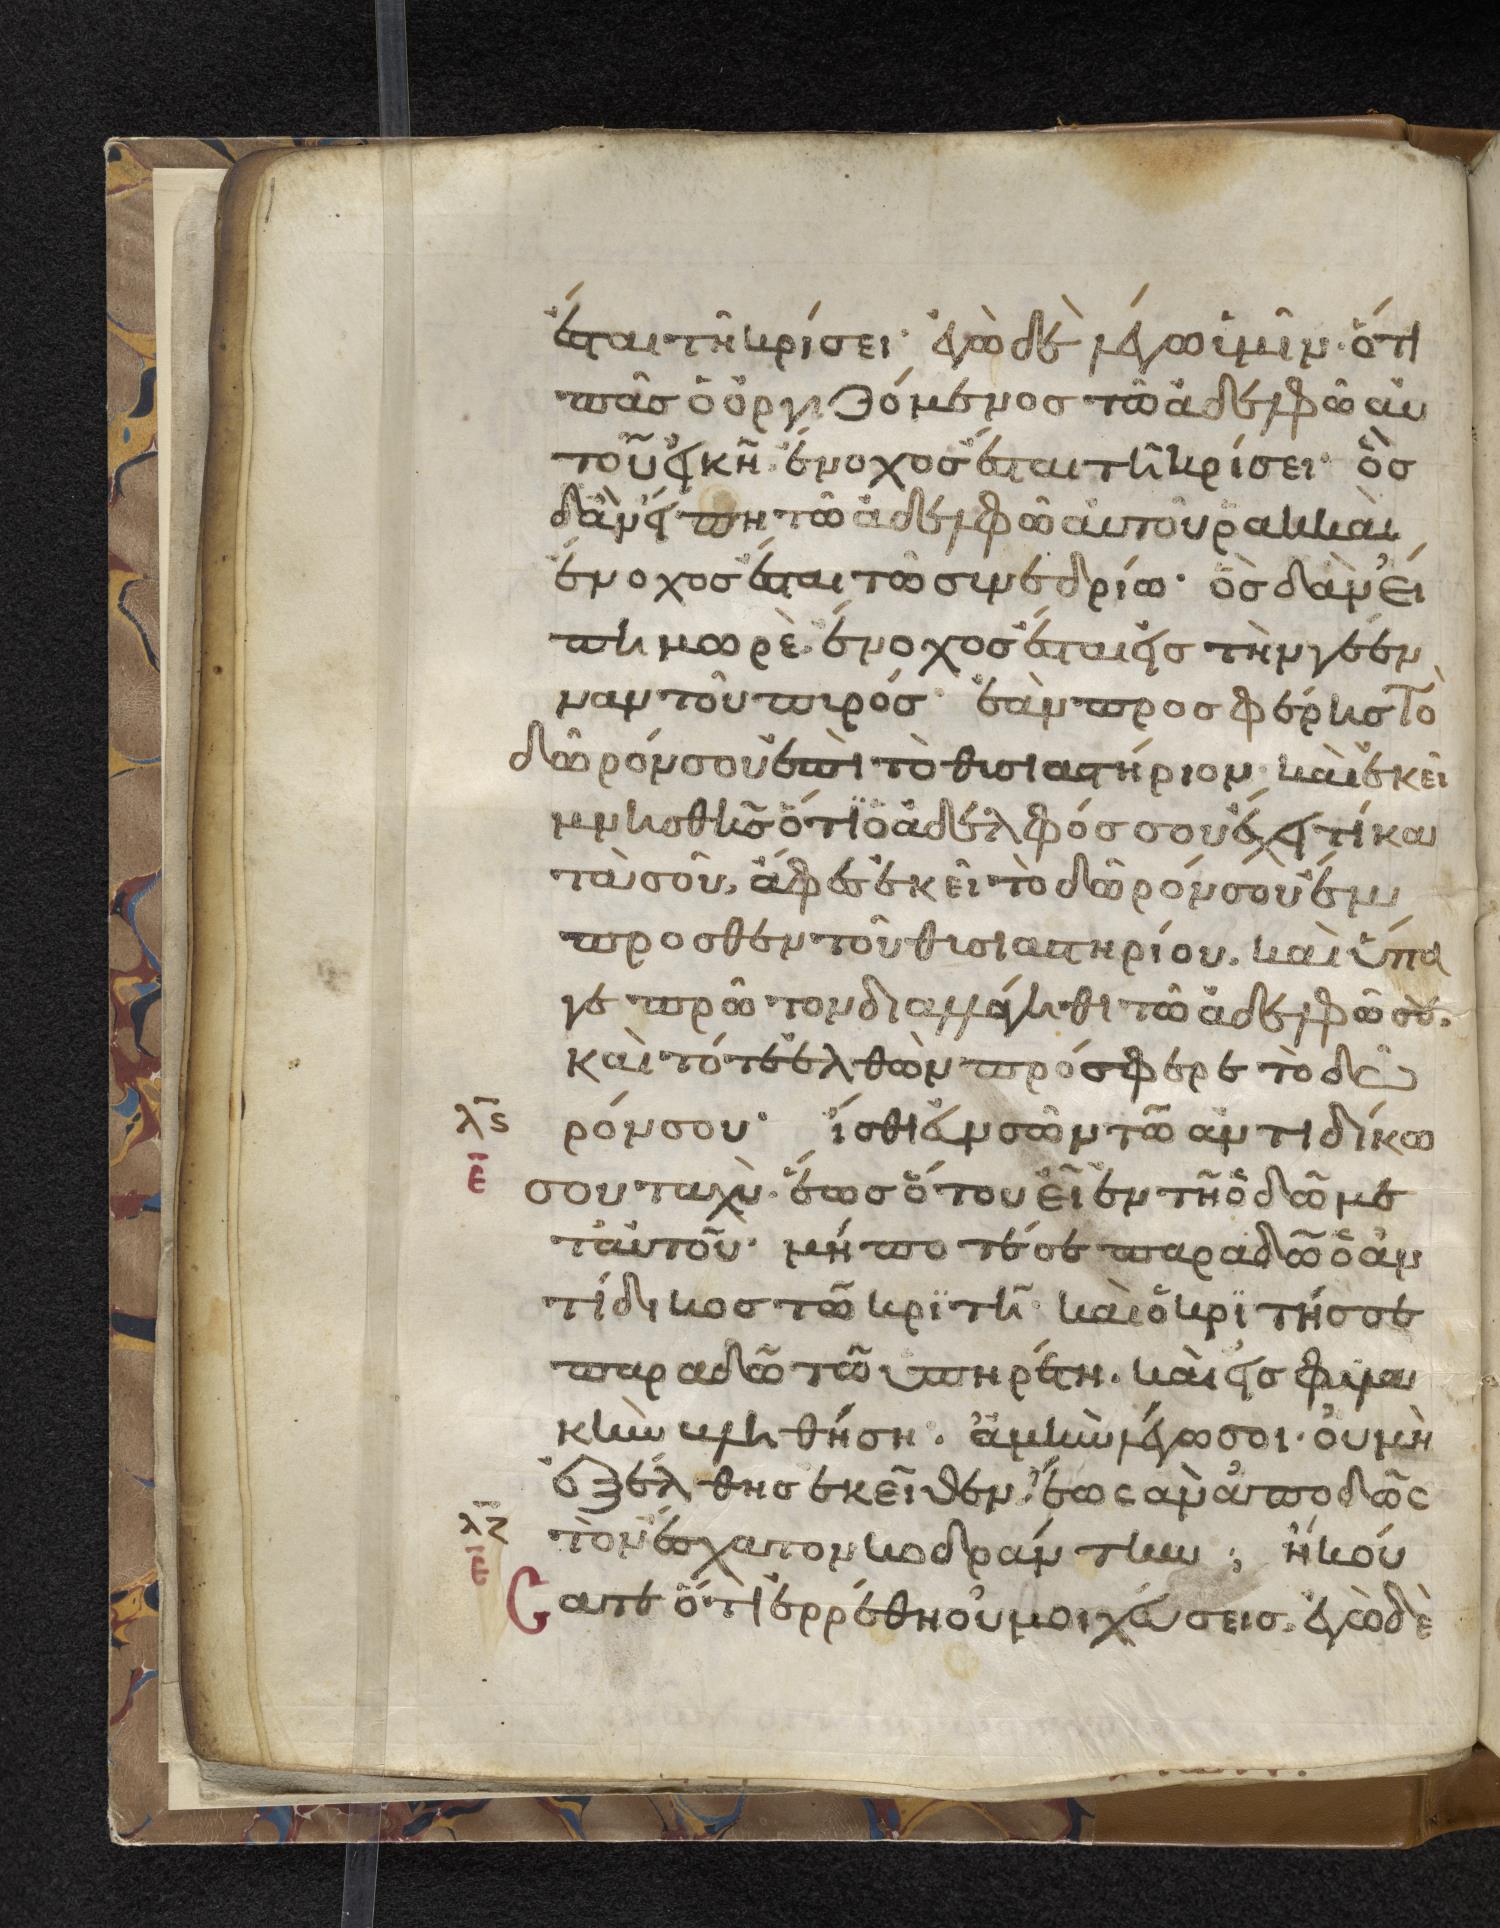 ἔσται τῆ κρίσει· ἐγὼ δὲ λέγω ὑμῖν· ὅτι
πᾶσ ὁ ὀργιζόμενοσ τῶ ἀδελφῶ αὐ
τοῦ εἰκῆ· ἔνοχοσ ἔσται τῆ κρίσει· ὃσ
δὰν εἴπη τῶ ἀδελφῶ αὐτοῦ ῥακκὰ
ἔνοχοσ ἔσται τῶ συνεδρίω· ὃσ δὰν εἴ
πη μωρὲ· ἔνοχοσ ἔσται εἰσ τὴν γέεν
ναν τοῦ πυρόσ· ἐὰν προσφέρησ τὸ
δῶρόν σου ἐπὶ τὸ θυσιαστήριον· καὶ ἐκεῖ
μνησθῆσ ὅτι ὁ ἀδελφόσ σου ἔχει τί κα
τὰ σοῦ, ἄφεσ ἐκεῖ τὸ δῶρόν σοὺ ἔμ
προσθεν τοῦ θυσιαστηρίου, καὶ ὕπα
γε πρῶτον διαλλάγηθι τῶ ἀδελφῶ σου.
καὶ τότε ἐλθὼν πρόσφερε τὸ δῶ
λϛ ρόν σου· ἴσθι εὐνοῶν τῶ ἀντιδίκω
ε σου ταχὺ· ἕωσ ὅτου εἶ ἐν τῆ ὁδῶ με
τ' αὐτοῦ· μήποτέ σε παραδῶ ὁ ἀν
τίδικοσ τῶ κριτῆ· καὶ ὁ κριτήσ σε
παραδῶ τῶ ὑπηρέτη· καὶ εἰσ φυλα
κὴν βληθήση· ἀμὴν λέγω σοι· οὐ μὴ
ἐξέλθησ ἐκεῖθεν· ἕως ἀν ἀποδῶς
λζ τὸν ἔσχατον κοδράντην; ἠκού
ε σατε ὅτι ἐρρέθη οὐ μοιχεύσεισ. ἐγὼ δὲ